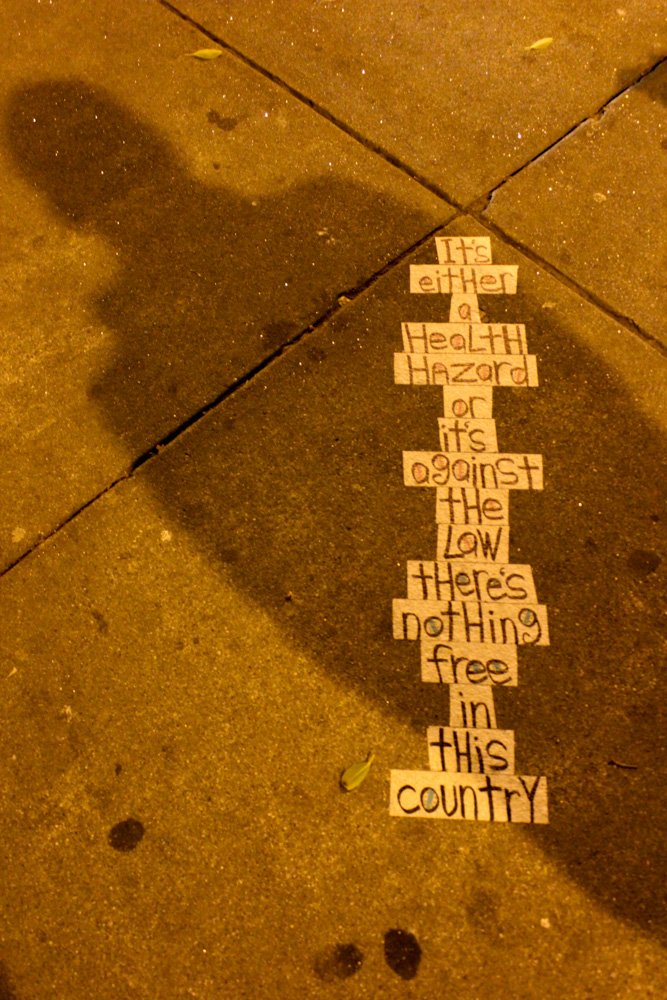 It's
eitHer
a
HeaLtH
HAZard
or
it's
against
tHe
LaW
tHere's
notHing
free
in
tHis
countrY